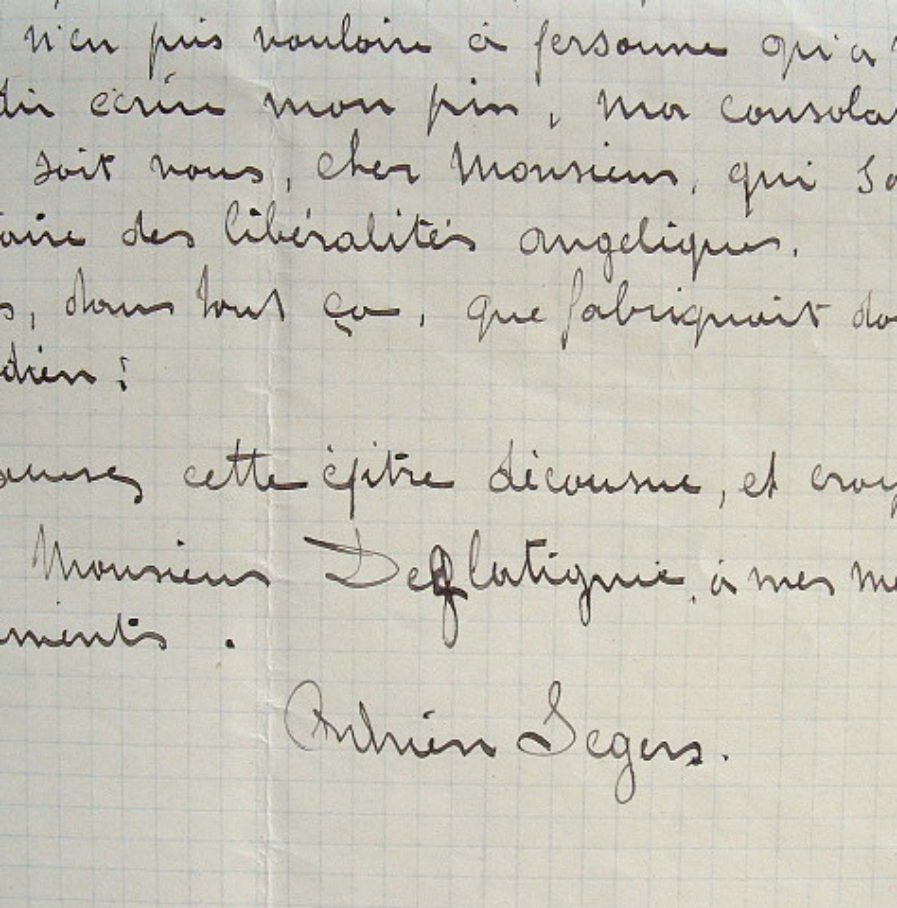 n'en puis vouloir à personne qui a
dû écrire mon pin, ma consola
soit vous, cher Monsieur, qui so
aire des libéralités angeliques.
s, dans tout ça, que fabriquait do
dien :
cette épitre décousue, et croy
Monsieur Deflatignie, à mes me
ments .
Adrien Segers.